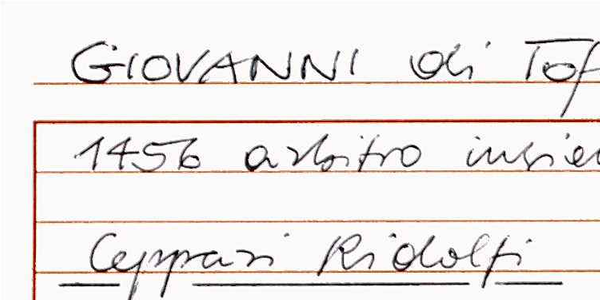 GIOVANNI di Tof
1456 arbitro insie
Ceppari Ridolfi